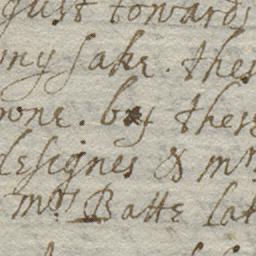 just towards
my sake. thes
none. by these
designes & mr
mrs Batte lat